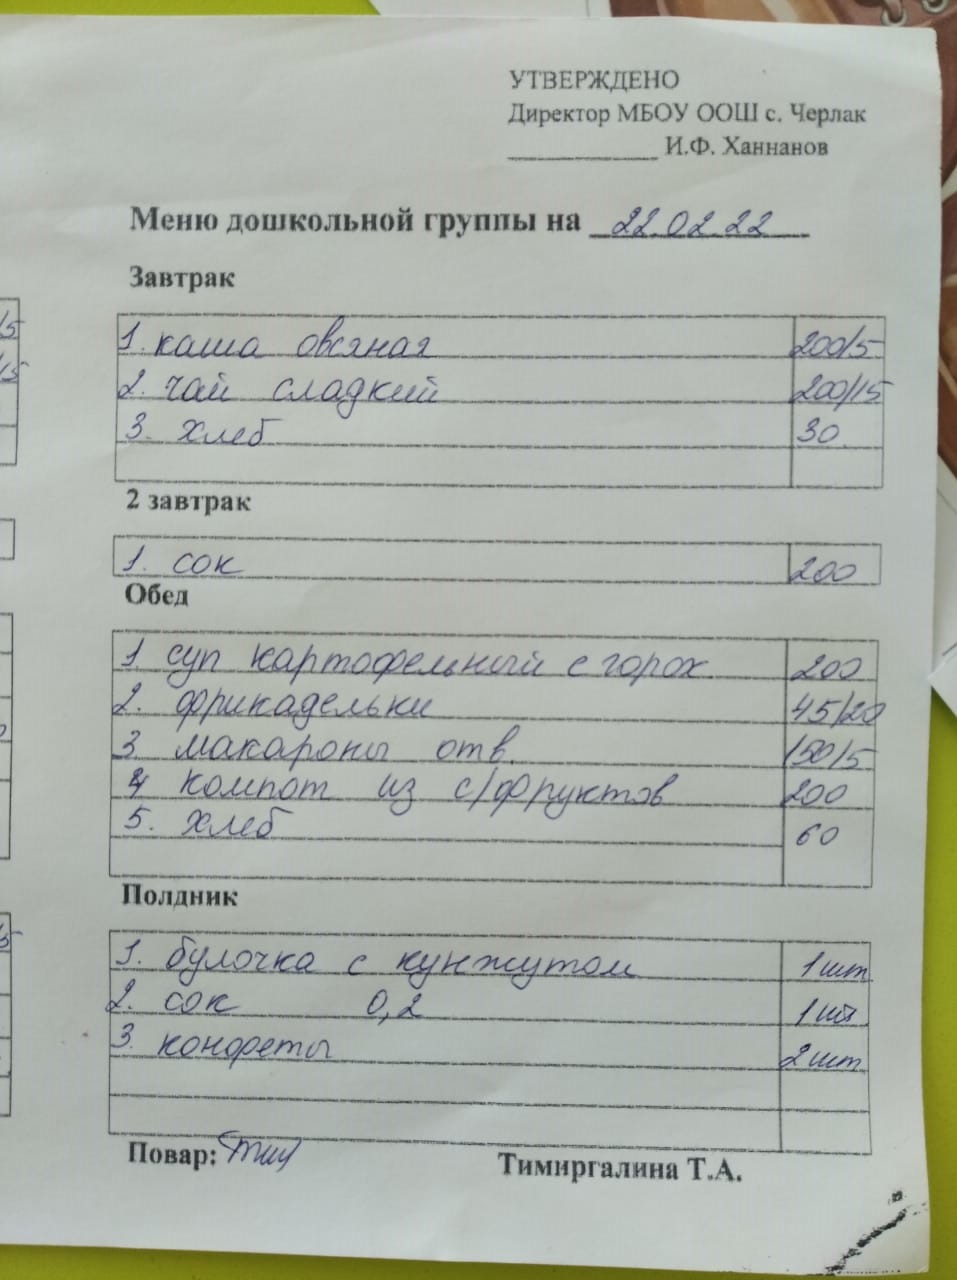 УТВЕРЖДЕНО
Директор МБОУ ООШ с. Черлак
____________ И.Ф. Ханнанов
Меню дошкольной группы на 22.02.22
Завтрак
1. каша овсяная 200/5
2. чай сладкий 200/15
3. хлеб 30
2 завтрак
1. сок 200
Обед
1. суп картофельный с горох. 200
2. фрикадельки 45/20
3. макароны отв. 150/5
4 компот из с/фруктов 200
5. хлеб 60
Полдник
1. булочка с кунжутом 1 шт
2. сок 0,2 1 шт
3. конфеты 2 шт
Повар: Тимиргалина Т.А.